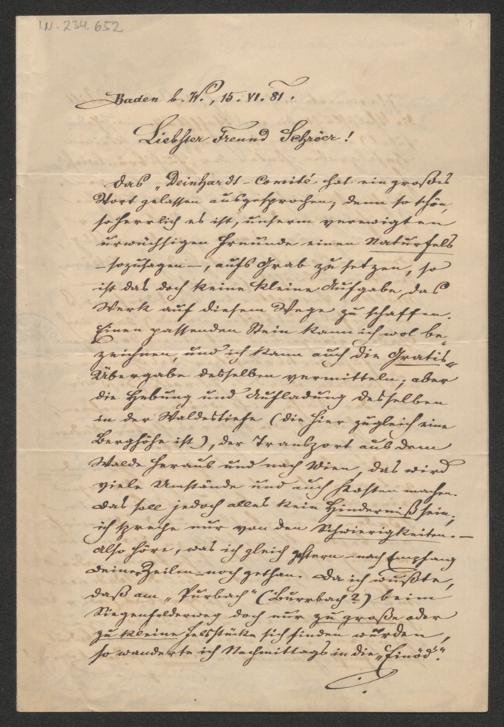 IN. 234.652
Baden b. W., 15. VI. 81.
Liebster Freund Schröer!
Das „Deinhardt-Comité“ hat ein großes
Wort gelassen ausgesprochen; denn so schön,
so herrlich es ist, unserm verewigten
urwüchsigen Freunde einen Naturfels
– sozusagen –, aufs Grab zu setzen, so
ist das doch keine kleine Aufgabe, das
Werk auf diesem Wege zu schaffen.
Einen passenden Stein kann ich wol be-
zeichnen, und ich kann auch die Gratis-
Übergabe desselben vermitteln; aber
die Hebung und Aufladung desselben
in der Waldestiefe (die hier zugleich eine
Berghöhe ist), der Transport aus dem
Walde heraus und nach Wien, das wird
viele Umstände und auch Kosten machen.
Das soll jedoch alles kein Hinderniß sein;
ich spreche nur von den Schwierigkeiten. –
Also höre, was ich gleich gestern nach Empfang
Deiner Zeilen noch gethan. Da ich wußte,
daß am „Purbach“ (Burrbach?) beim
Siegenfelderweg doch nur zu große oder
zu kleine Felsstücke sich finden würden,
so wanderte ich Nachmittags in die „Einöd“.